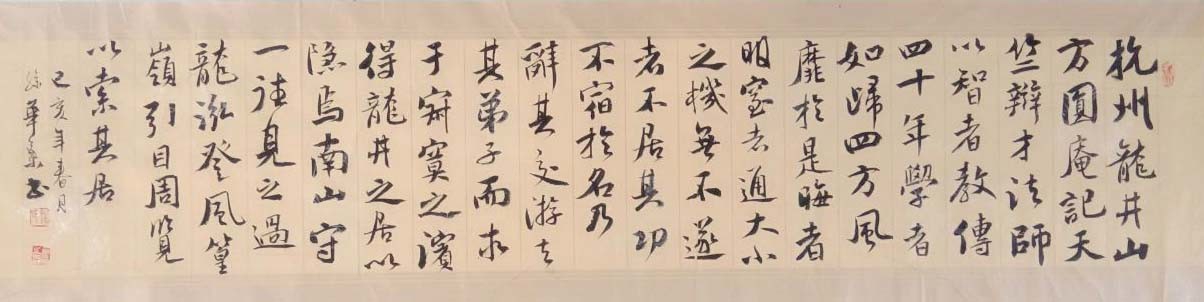 杭州龍井山
方圓庵記天
竺辯才法師
以智者教傳
四十年學者
如歸四方風
靡於是晦者
明窒者通大小
之機無不遂
者不居其功
不宿於名乃
辭其交游去
其弟子而求
于寂寞之濱
得龍井之居以
隱焉南山守
一往見之過
龍泓登風篁
嶺引目周覽
以索其居
己亥年春月
華書